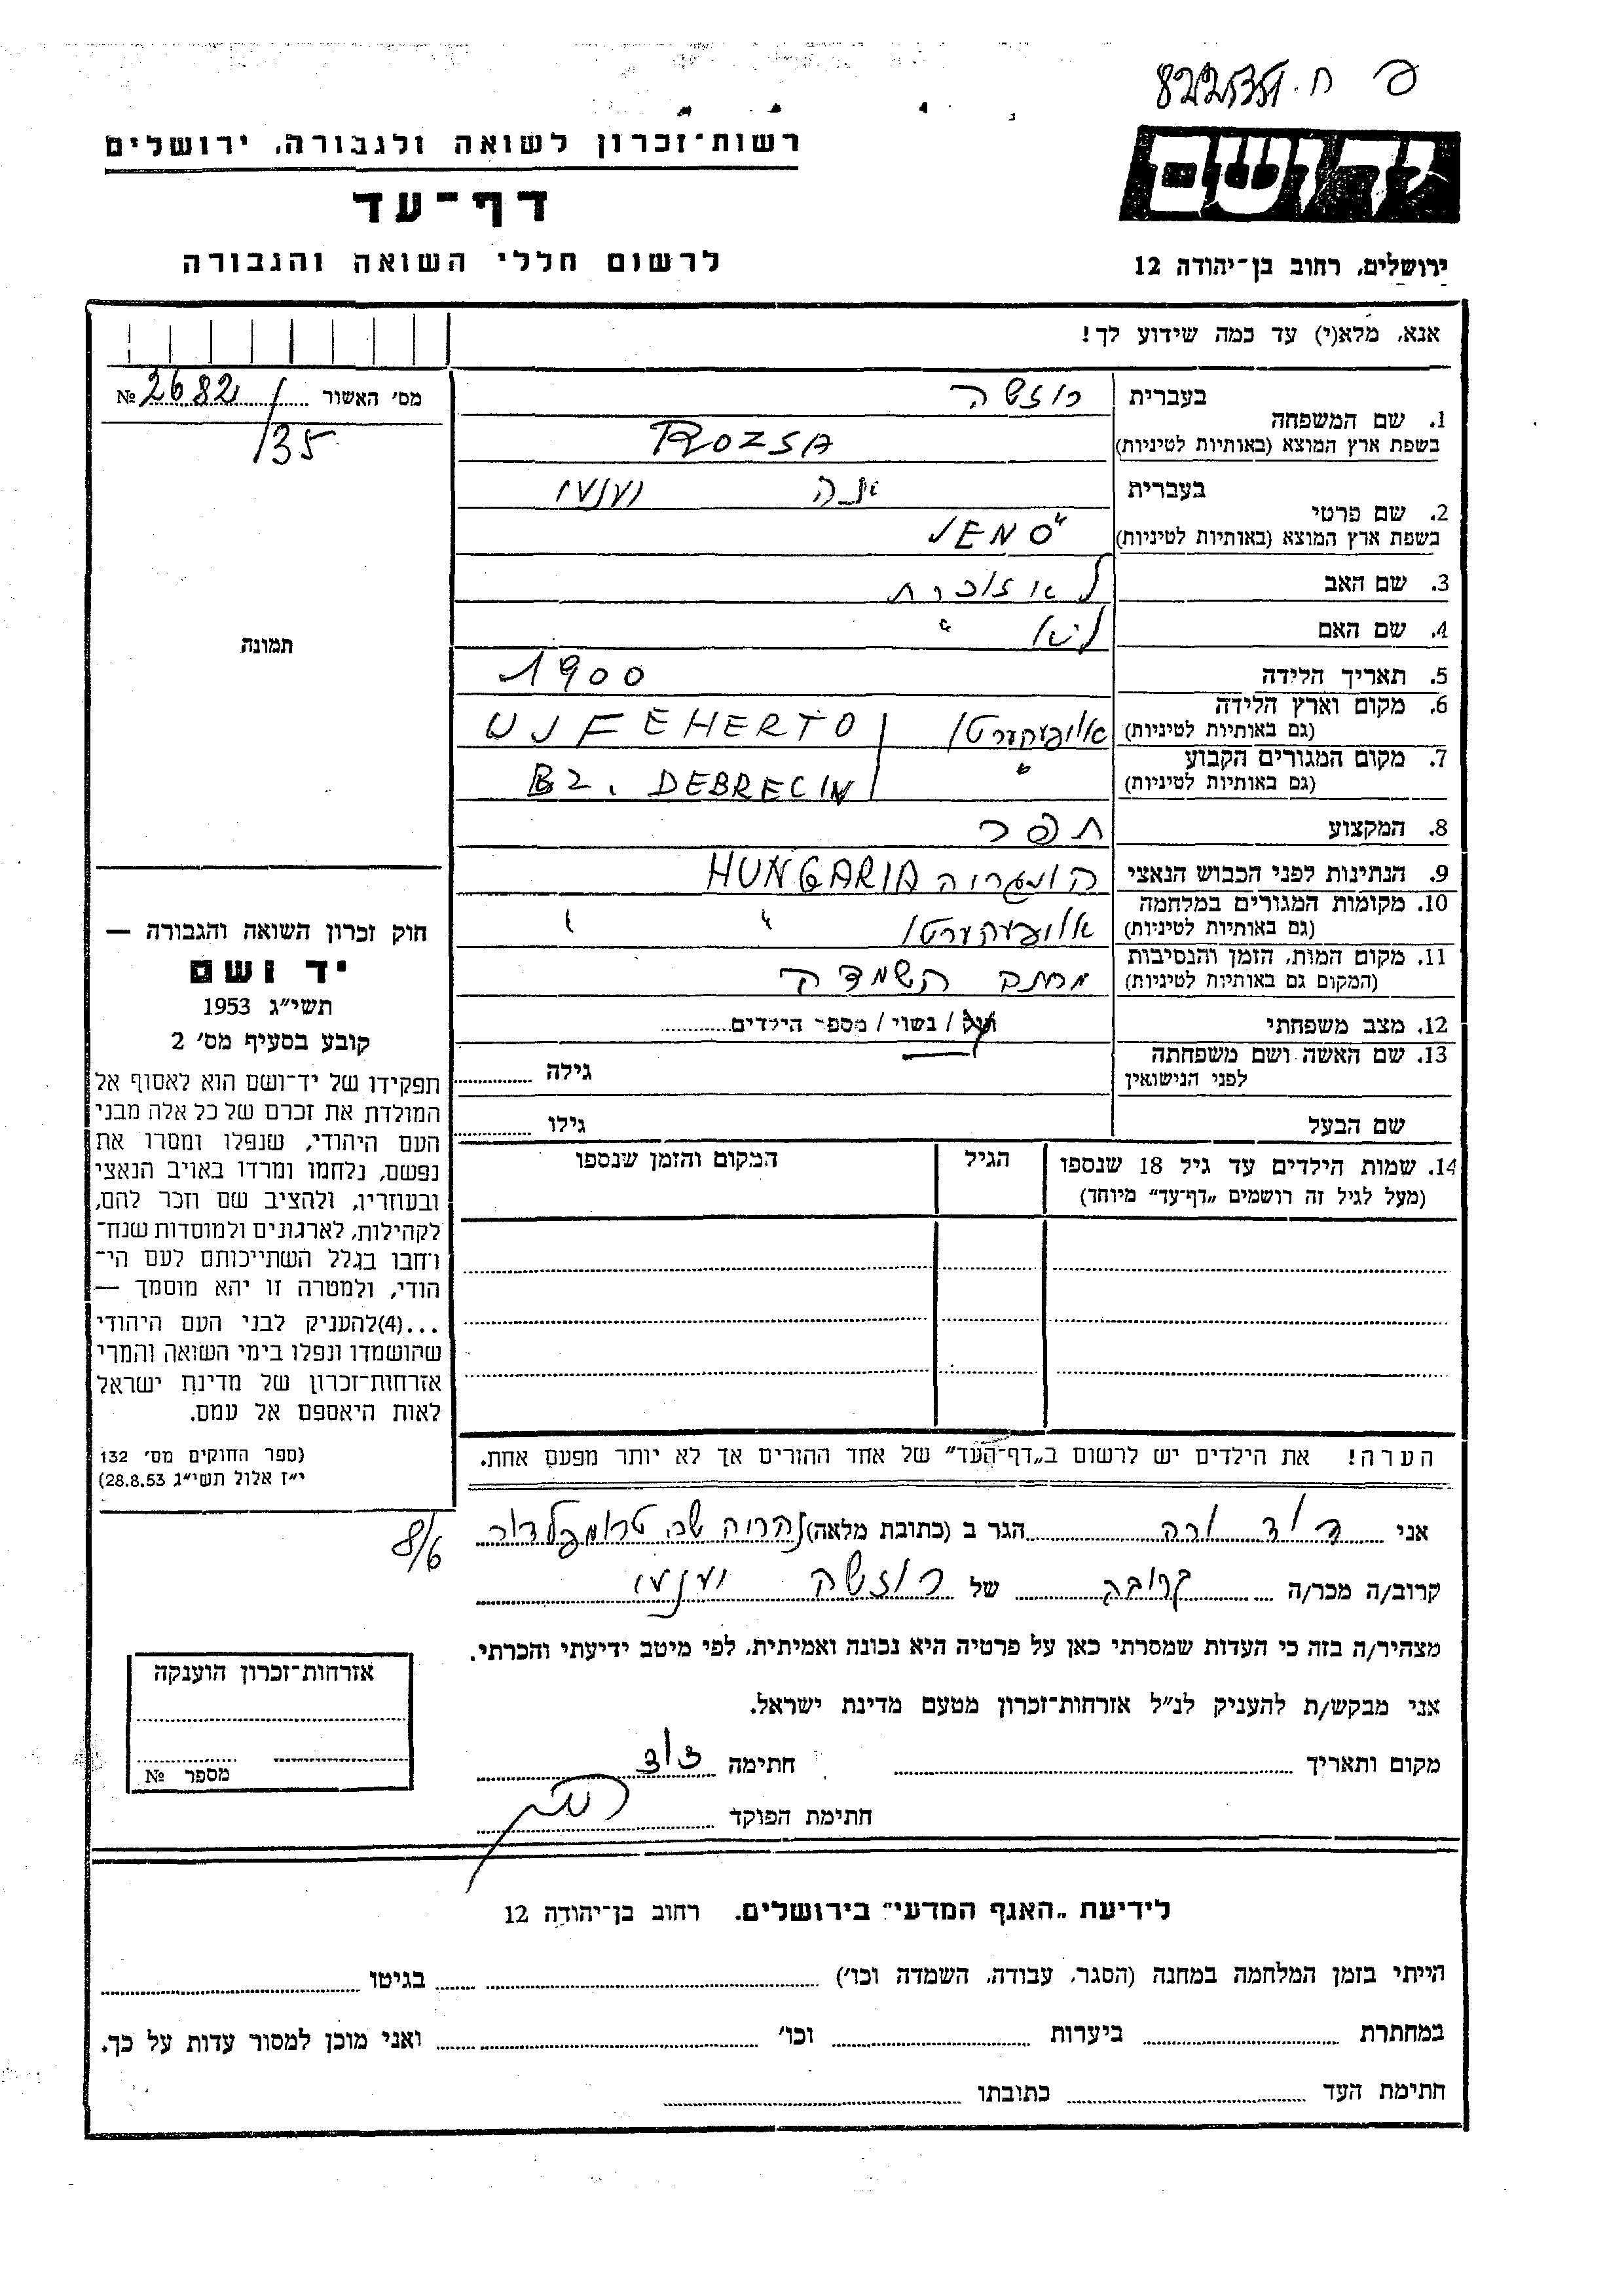 רשות־זכרון לשואה ולגבורה, ירושלים
יד ושם
דף־עד
לרשום חללי השואה והגבורה
ירושלים, רחוב בן־יהודה 12
אנא, מלא(י) עד כמה שידוע לך!
מס׳ האשור № 2682/135
1. שם המשפחה בעברית רוזשה
בשפת ארץ המוצא (באותיות לטיניות) ROZSA
2. שם פרטי בעברית יונה
בשפת ארץ המוצא (באותיות לטיניות) JENÖ
3. שם האב
4. שם האם
5. תאריך הלידה 1900
6. מקום וארץ הלידה
(גם באותיות לטיניות) UJFEHERTO
7. מקום המגורים הקבוע "
(גם באותיות לטיניות) BZ. DEBRECIN
8. המקצוע תפר
9. הנתינות לפני הכבוש הנאצי הונגריה HUNGARIA
10. מקומות המגורים במלחמה " "
(גם באותיות לטיניות)
11. מקום המות, הזמן והנסיבות מחנה השמדה
(המקום גם באותיות לטיניות)
12. מצב משפחתי רוק / נשוי / מספר הילדים
13. שם האשה ושם משפחתה
לפני הנישואין גילה
שם הבעל גילו
14. שמות הילדים עד גיל 18 שנספו הגיל המקום והזמן שנספו
(מעל לגיל זה רושמים „דף־עד” מיוחד)
הערה! את הילדים יש לרשום ב„דף־העד” של אחד ההורים אך לא יותר מפעם אחת.
תמונה
חוק זכרון השואה והגבורה —
יד ושם
תשי״ג 1953
קובע בסעיף מס׳ 2
תפקידו של יד־ושם הוא לאסוף אל
המולדת את זכרם של כל אלה מבני
העם היהודי, שנפלו ומסרו את
נפשם, נלחמו ומרדו באויב הנאצי
ובעוזריו, ולהציב שם וזכר להם,
לקהילות, לארגונים ולמוסדות שנח־
רחבו בגלל השתייכותם לעם הי־
הודי, ולמטרה זו יהא מוסמך —
...(4)להעניק לבני העם היהודי
שהושמדו ונפלו בימי השואה והמרי
אזרחות־זכרון של מדינת ישראל
לאות היאספם אל עמם.
(ספר החוקים מס׳ 132
י״ז אלול תשי״ג 28.8.53)
8/6
אני דוד הגר ב (כתובת מלאה) נהריה
קרוב/ה מכר/ה קרובה של רוזשה
מצהיר/ה בזה כי העדות שמסרתי כאן על פרטיה היא נכונה ואמיתית, לפי מיטב ידיעתי והכרתי.
אני מבקש/ת להעניק לנ״ל אזרחות־זכרון מטעם מדינת ישראל.
מקום ותאריך חתימה
חתימת הפוקד
אזרחות־זכרון הוענקה
מספר №
לידיעת „האגף המדעי” בירושלים. רחוב בן־יהודה 12
הייתי בזמן המלחמה במחנה (הסגר, עבודה, השמדה וכו׳) בגיטו
במחתרת ביערות וכו׳ ואני מוכן למסור עדות על כך.
חתימת העד כתובתו